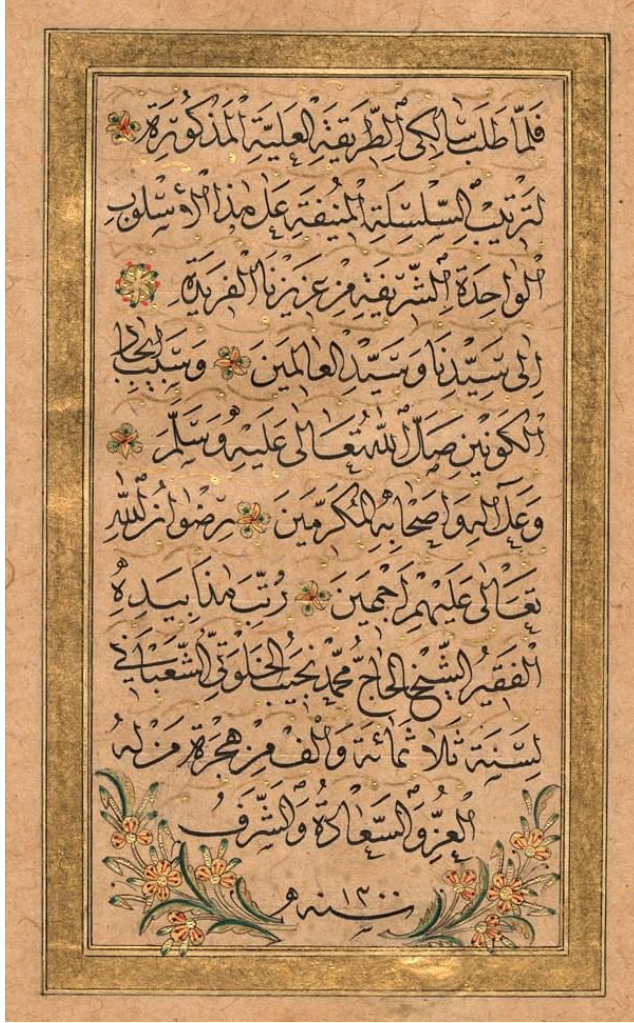 فَلَمَّا طَلَبَ سَالِكِي الطَّرِيقَةِ الْعَلِيَّةِ الْمَذْكُورَةِ
لِتَرْتِيبِ السِّلْسِلَةِ الْمُنِيفَةِ عَلَى هٰذَا الْأُسْلُوبِ
الْوَاحِدَةِ الشَّرِيفَةِ مِنْ عَزِيزِنَا الْفَرِيدَةِ
اِلٰى سَيِّدِنَا وَسَيِّدِ الْعَالَمِينَ وَسَبَبِ اِيجَادِ
الْكَوْنَيْنِ صَلَّى اللّٰهُ تَعَالٰى عَلَيْهِ وَسَلَّمَ
وَعَلٰى اٰلِهِ وَاَصْحَابِهِ الْمُكَرَّمِينَ رِضْوَانُ اللّٰهِ
تَعَالٰى عَلَيْهِمْ اَجْمَعِينَ رُتِّبَ هٰذَا بِيَدِهِ
الْفَقِيرُ الشَّيْخُ الْحَاجُّ مُحَمَّدْ نَجِيبُ الْخَلْوَتِيُّ الشَّعْبَانِي
لِسَنَةِ ثَلَاثُمِائَةَ وَاَلْفٍ مِنْ هِجْرَةِ مَنْ لَهُ
الْعِزُّ وَالسَّعَادَةُ وَالشَّرَفُ
سنه ١٣٠٠